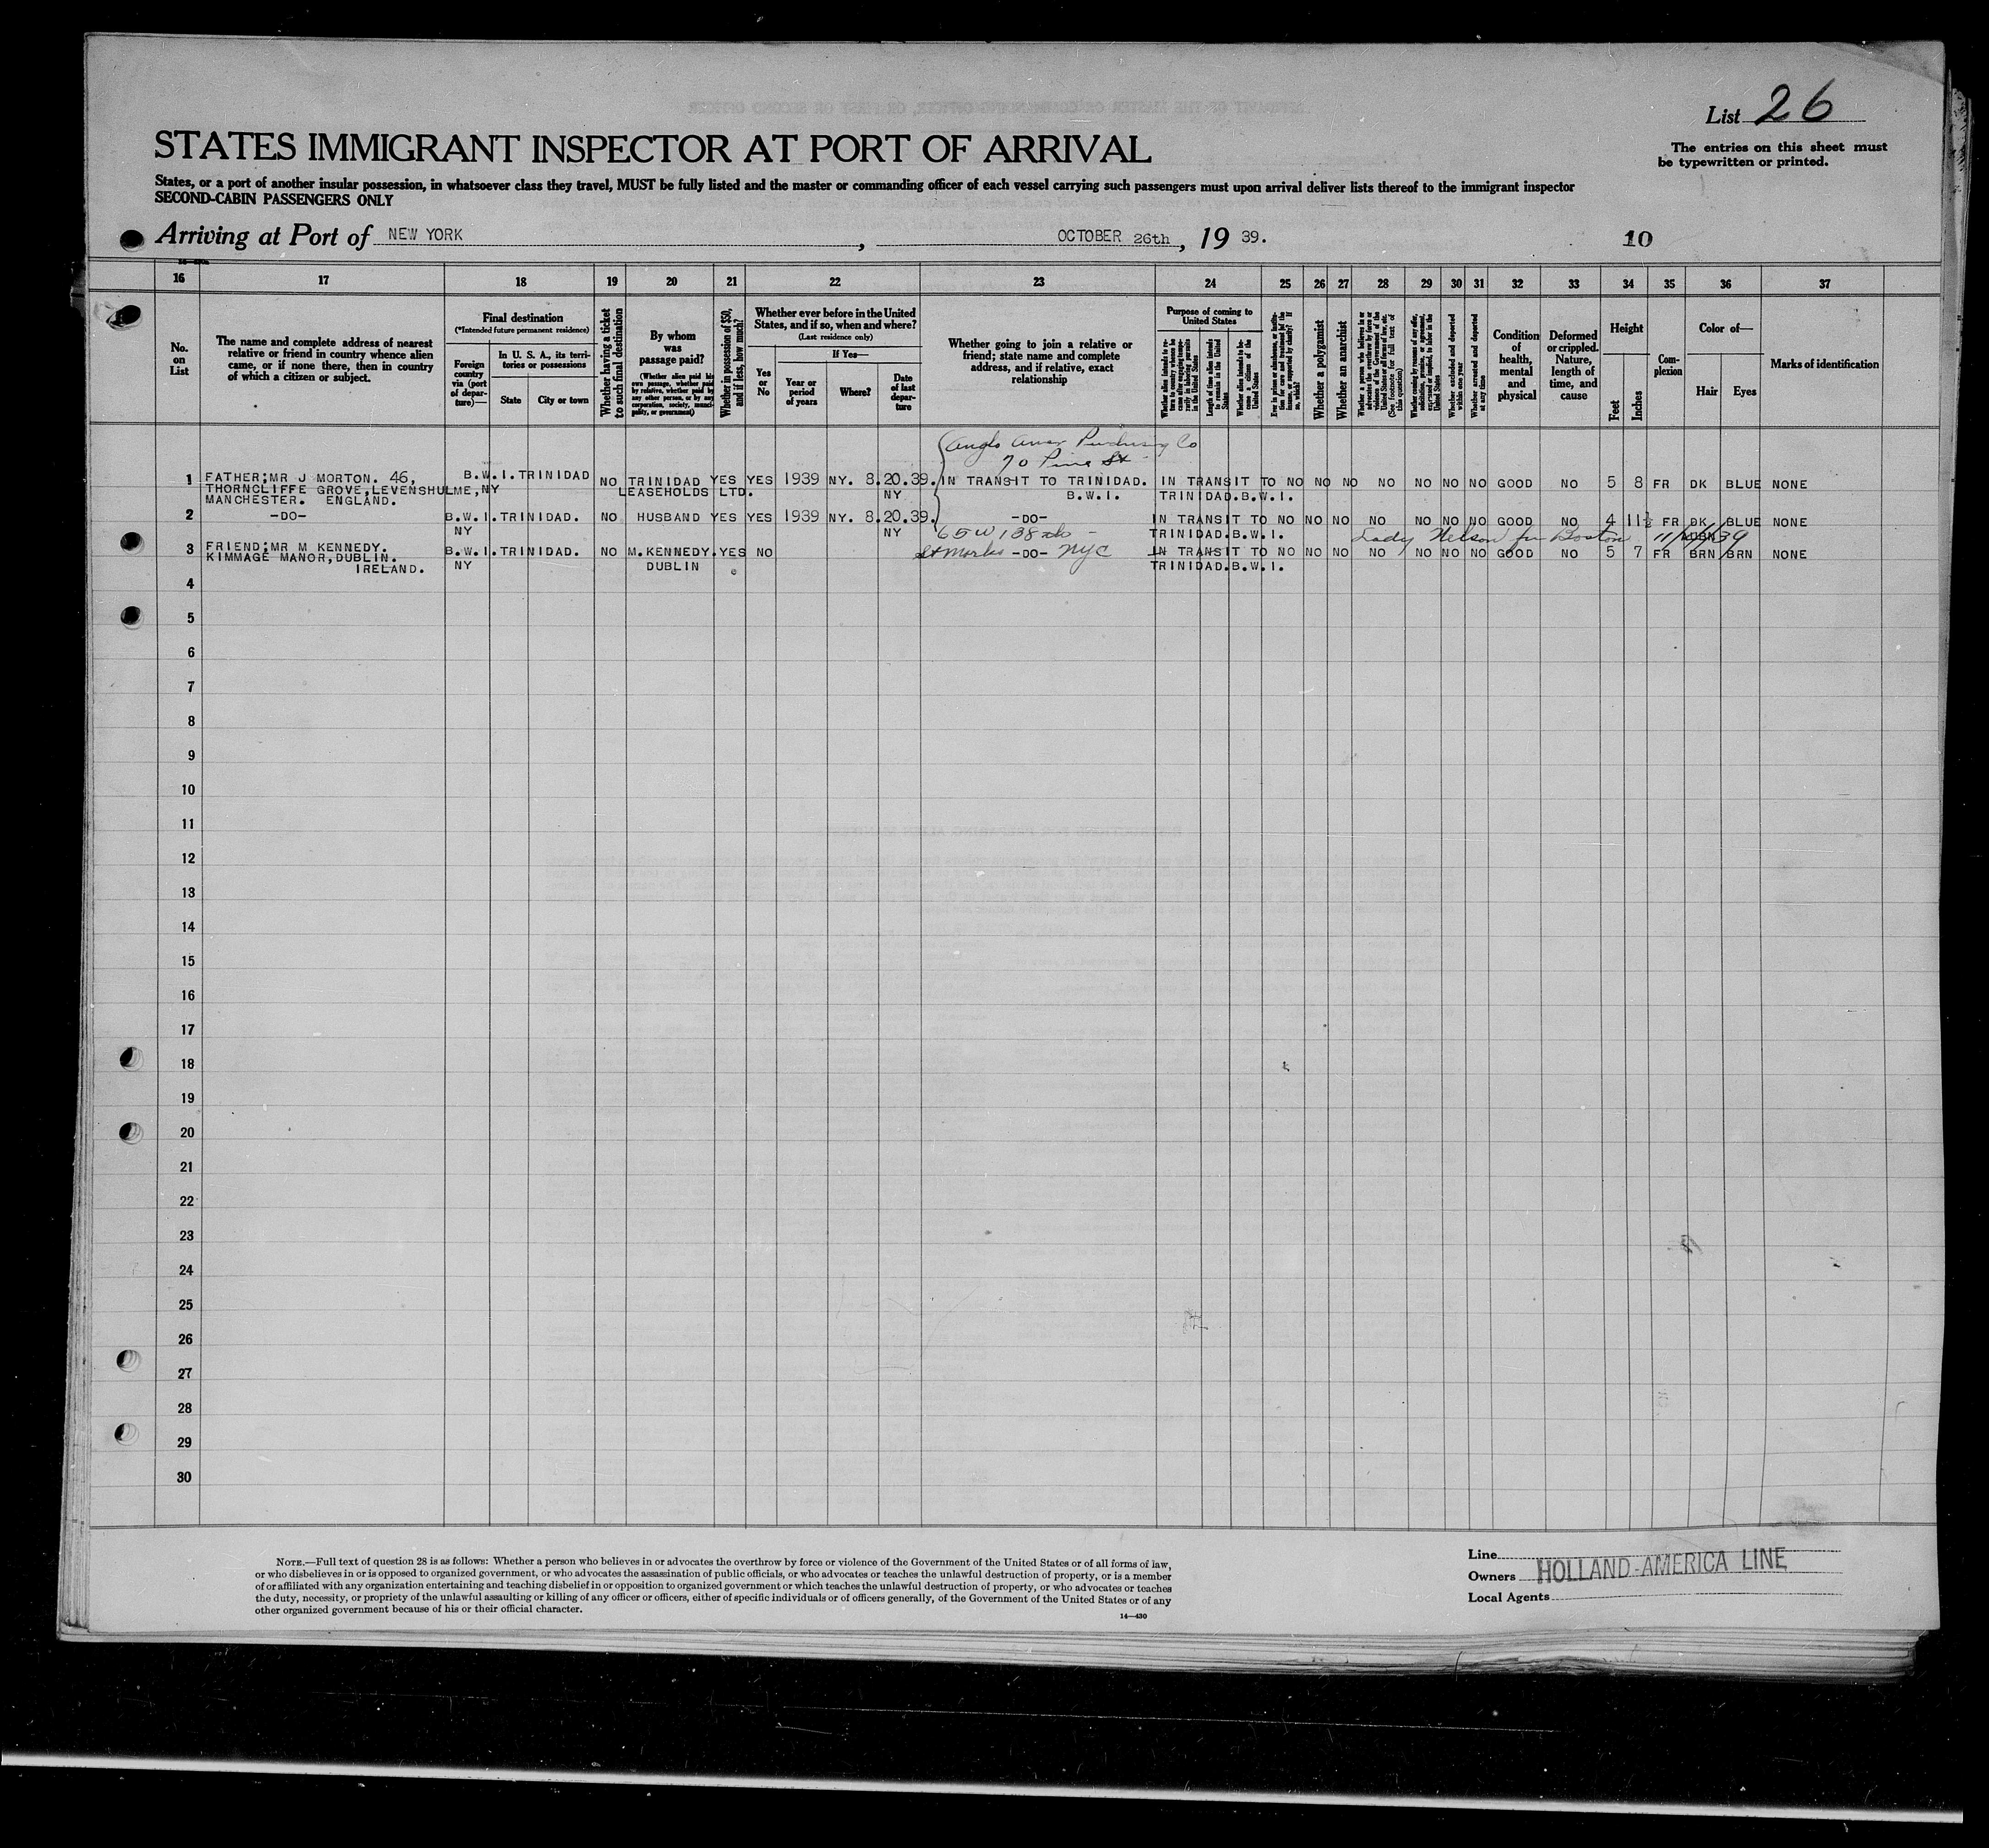 List 26
STATES IMMIGRANT INSPECTOR AT PORT OF ARRIVAL
The entries on this sheet must
be typewritten or printed.
States, or a port of another insular possession, in whatsoever class they travel, MUST be fully listed and the master or commanding officer of each vessel carrying such passengers must upon arrival deliver lists thereof to the immigrant inspector
SECOND-CABIN PASSENGERS ONLY
Arriving at Port of NEW YORK, OCTOBER 26th, 19 39. 10
16 17 18 19 20 21 22 23 24 25 26 27 28 29 30 31 32 33 34 35 36 37
No. on List
The name and complete address of nearest relative or friend in country whence alien came, or if none there, then in country of which a citizen or subject.
Final destination
(*Intended future permanent residence)
Foreign country via (port of departure)—
In U. S. A., its territories or possessions
State
City or town
Whether having a ticket to such final destination
By whom was passage paid?
(Whether alien paid his own passage, whether paid by relative, whether paid by any other person, or by any corporation, society, municipality, or government)
Whether in possession of $50, and if less, how much?
Whether ever before in the United States, and if so, when and where?
(Last residence only)
Yes or No
If Yes—
Year or period of years
Where?
Date of last departure
Whether going to join a relative or friend; state name and complete address, and if relative, exact relationship
Purpose of coming to United States
Length of time alien intends to remain in the United States
Whether alien intends to become a citizen of the United States
Whether a polygamist
Whether an anarchist
Whether excluded and deported within one year
Whether arrested and deported at any time
Condition of health, mental and physical
Deformed or crippled. Nature, length of time, and cause
Height
Feet
Inches
Complexion
Color of—
Hair
Eyes
Marks of identification
Anglo Amer Purchasing Co
70 Pine St
1 FATHER;MR J MORTON. 46, B.W.I.TRINIDAD NO TRINIDAD YES YES 1939 NY. 8.20.39. IN TRANSIT TO TRINIDAD. IN TRANSIT TO NO NO NO NO NO NO NO GOOD NO 5 8 FR DK BLUE NONE
THORNCLIFFE GROVE,LEVENSHULME,NY LEASEHOLDS LTD. NY B.W.I. TRINIDAD.B.W.I.
MANCHESTER. ENGLAND.
2 -DO- B.W.I.TRINIDAD. NO HUSBAND YES YES 1939 NY. 8.20.39. -DO- IN TRANSIT TO NO NO NO NO NO NO NO GOOD NO 4 11½ FR DK BLUE NONE
NY NY 65 W 138 st - TRINIDAD.B.W.I. Lady Nelson fm Boston
3 FRIEND;MR M KENNEDY. B.W.I.TRINIDAD. NO M.KENNEDY. YES NO St Marks -DO- NYC IN TRANSIT TO NO NO NO NO NO NO NO GOOD NO 5 7 FR BRN BRN NONE
KIMMAGE MANOR,DUBLIN. NY DUBLIN TRINIDAD.B.W.I.
IRELAND.
4
5
6
7
8
9
10
11
12
13
14
15
16
17
18
19
20
21
22
23
24
25
26
27
28
29
30
NOTE.—Full text of question 28 is as follows: Whether a person who believes in or advocates the overthrow by force or violence of the Government of the United States or of all forms of law,
or who disbelieves in or is opposed to organized government, or who advocates the assassination of public officials, or who advocates or teaches the unlawful destruction of property, or is a member
of or affiliated with any organization entertaining and teaching disbelief in or opposition to organized government or which teaches the unlawful destruction of property, or who advocates or teaches
the duty, necessity, or propriety of the unlawful assaulting or killing of any officer or officers, either of specific individuals or of officers generally, of the Government of the United States or of any
other organized government because of his or their official character.
14—430
Line
Owners HOLLAND-AMERICA LINE
Local Agents